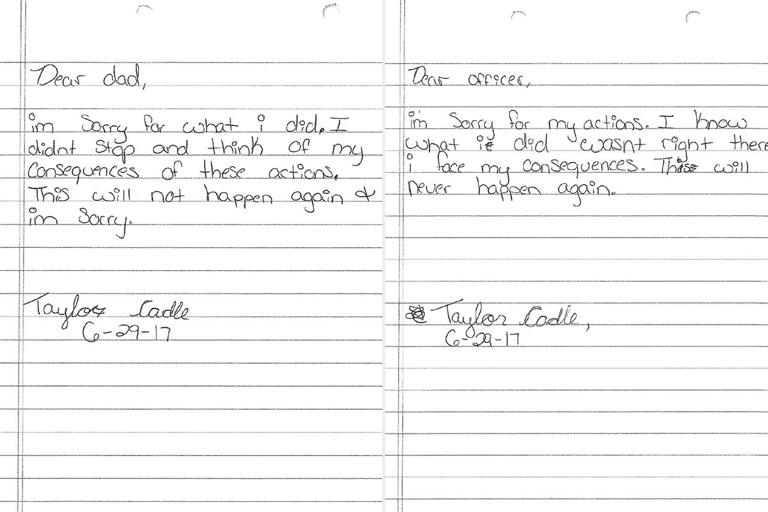 Dear dad,
im Sorry for what i did. I
didnt Stop and think of my
Consequences of these actions.
This will not happen again &
im Sorry.
Taylor Cadle
6-29-17
Dear officer,
im Sorry for my actions. I know
what i did wasnt right there
i face my consequences. This will
never happen again.
Taylor Cadle,
6-29-17